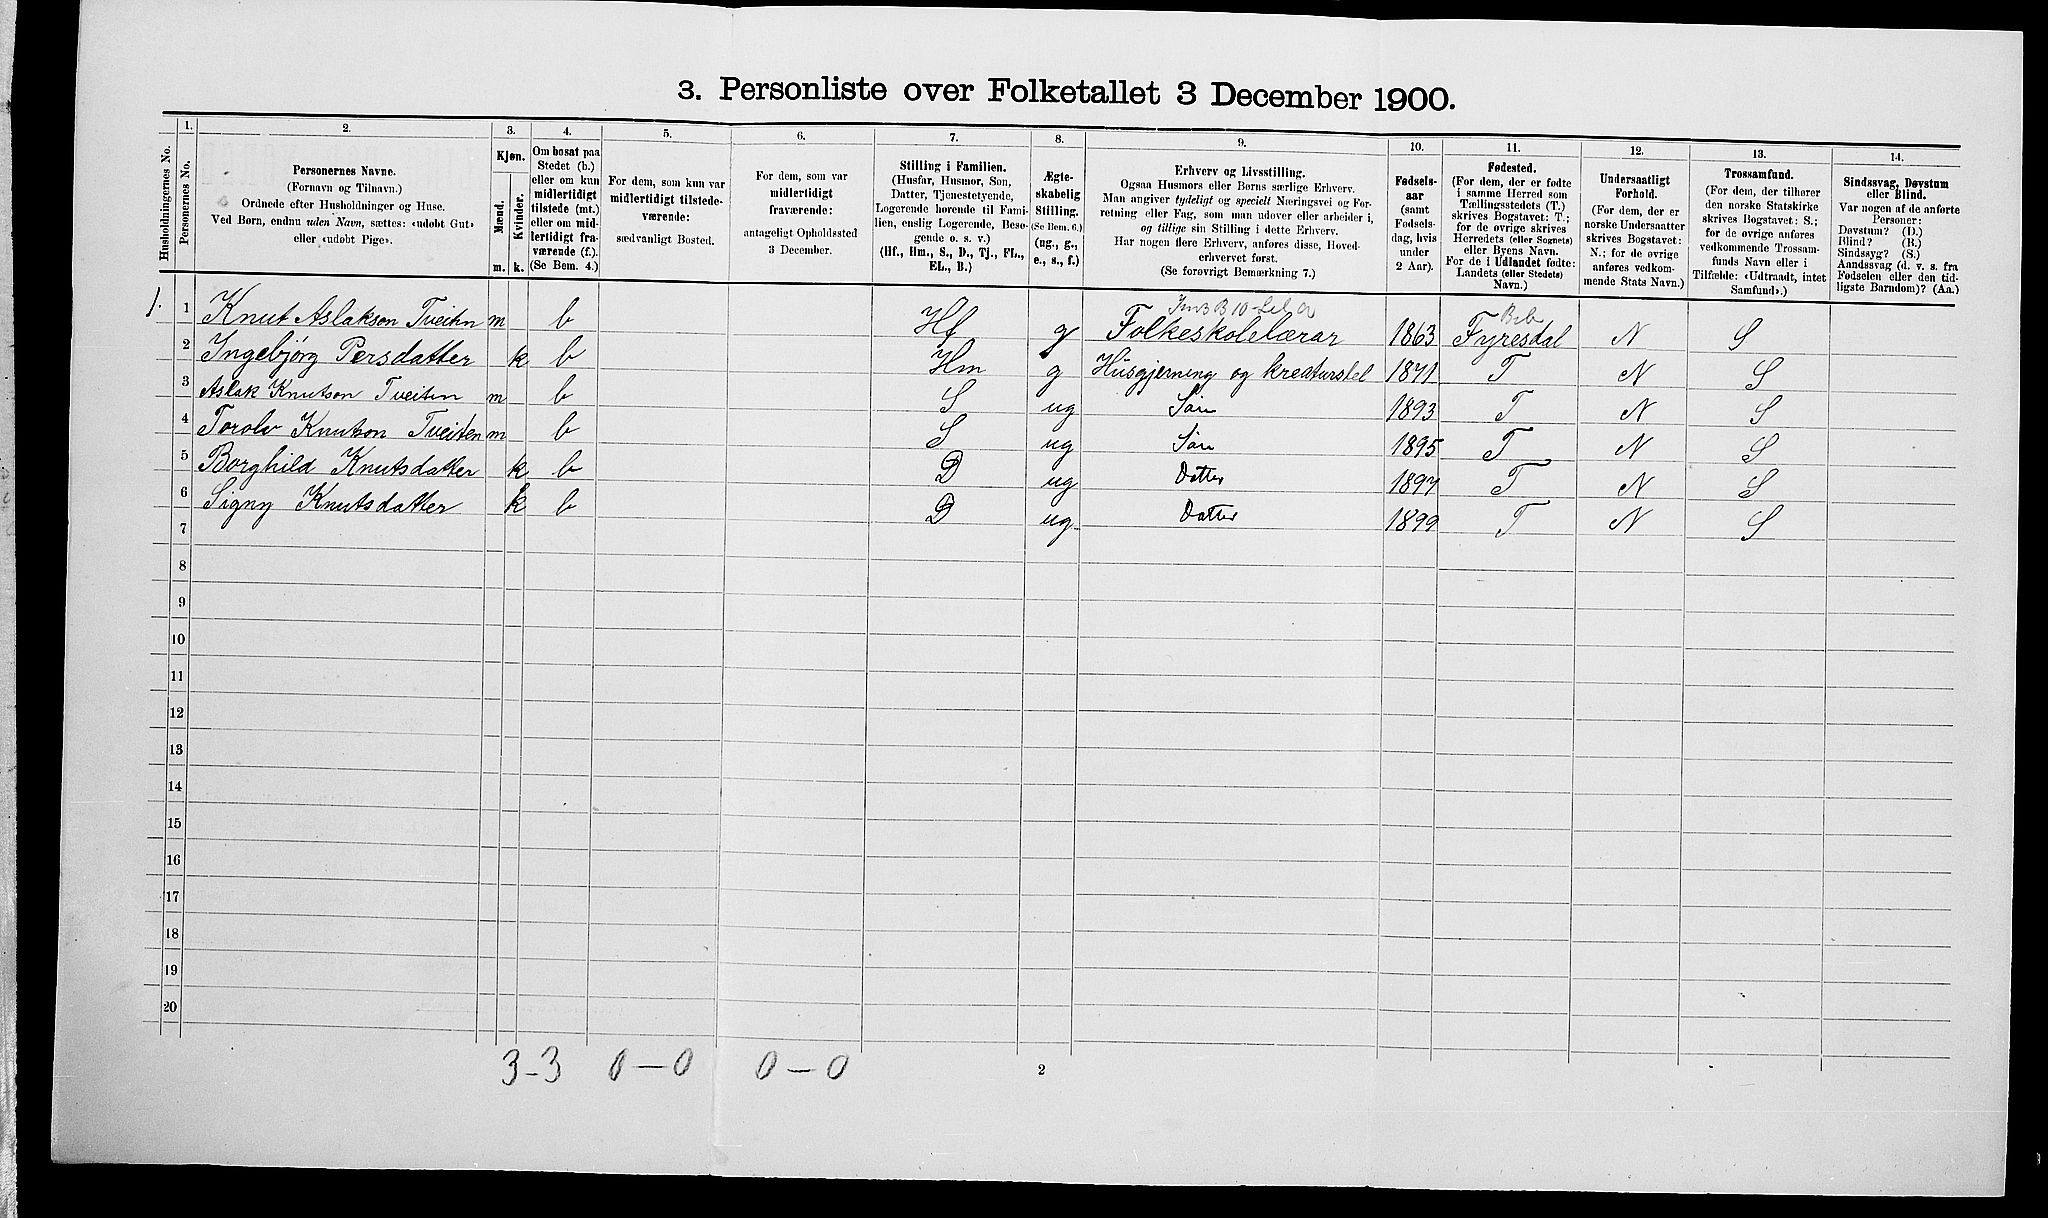 3. Personliste over Folketallet 3 December 1900.
1. 2. 3. 4. 5. 6. 7. 8. 9. 10. 11. 12. 13. 14.
Husholdningernes No.
Personernes No.
Personernes Navne.
(Fornavn og Tilnavn.)
Ordnede efter Husholdninger og Huse.
Ved Børn, endnu uden Navn, sættes: «udøbt Gut»
eller «udøbt Pige».
Kjøn.
Mænd.
Kvinder.
m. k.
Om bosat paa
Stedet (b.)
eller om kun
midlertidigt
tilstede (mt.)
eller om mid-
lertidigt fra-
værende (f.)
(Se Bem. 4.)
For dem, som kun var
midlertidigt tilstede-
værende:
sædvanligt Bosted.
For dem, som var
midlertidigt
fraværende:
antageligt Opholdssted
3 December.
Stilling i Familien.
(Husfar, Husmor, Søn,
Datter, Tjenestetyende,
Logerende hørende til Fami-
lien, enslig Logerende, Besø-
gende o. s. v.)
(Hf., Hm., S., D., Tj., FL.,
EL., B.)
Ægte-
skabelig
Stilling.
(Se Bem. 6.)
(ug., g.,
e., s., f.)
Erhverv og Livsstilling.
Ogsaa Husmors eller Børns særlige Erhverv.
Man angiver tydeligt og specielt Næringsvei og For-
retning eller Fag, som man udøver eller arbeider i,
og tillige sin Stilling i dette Erhverv.
Har nogen flere Erhverv, anføres disse, Hoved-
erhvervet først.
(Se forøvrigt Bemærkning 7.)
Fødsels-
aar
(samt
Fødsels-
dag, hvis
under
2 Aar).
Fødested.
(For dem, der er fødte
i samme Herred som
Tællingsstedets (T.)
skrives Bogstavet: T.;
for de øvrige skrives
Herredets (eller Sognets)
eller Byens Navn.
For de i Udlandet fødte:
Landets (eller Stedets)
Navn.)
Undersaatligt
Forhold.
(For dem, der er
norske Undersaatter
skrives Bogstavet:
N.; for de øvrige
anføres vedkom-
mende Stats Navn.)
Trossamfund.
(For dem, der tilhører
den norske Statskirke
skrives Bogstavet: S.;
for de øvrige anføres
vedkommende Trossam-
funds Navn eller i
Tilfælde: «Udtraadt, intet
Samfund».)
Sindssvag, Døvstum
eller Blind.
Var nogen af de anførte
Personer:
Døvstum? (D.)
Blind? (B.)
Sindssyg? (S.)
Aandssvag (d. v. s. fra
Fødselen eller den tid-
ligste Barndom)? (Aa.)
1. 1 Knut Aslakson Tveitin m b Hf g Folkeskolelærar 1863 Fyresdal N S
2 Ingebjørg Persdatter k b Hm g Husgjerning og kreaturstel 1871 T N S
3 Aslak Knutson Tveitin m b S ug Søn 1893 T N S
4 Torolv Knutson Tveiten m b S ug Søn 1895 T N S
5 Borghild Knutsdatter k b D ug Datter 1897 T N S
6 Signy Knutsdatter k b D ug Datter 1899 T N S
7
8
9
10
11
12
13
14
15
16
17
18
19
20
3-3 0-0 0-0
2